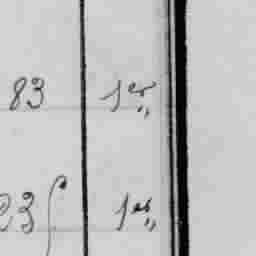 83 1er„
23 1er„